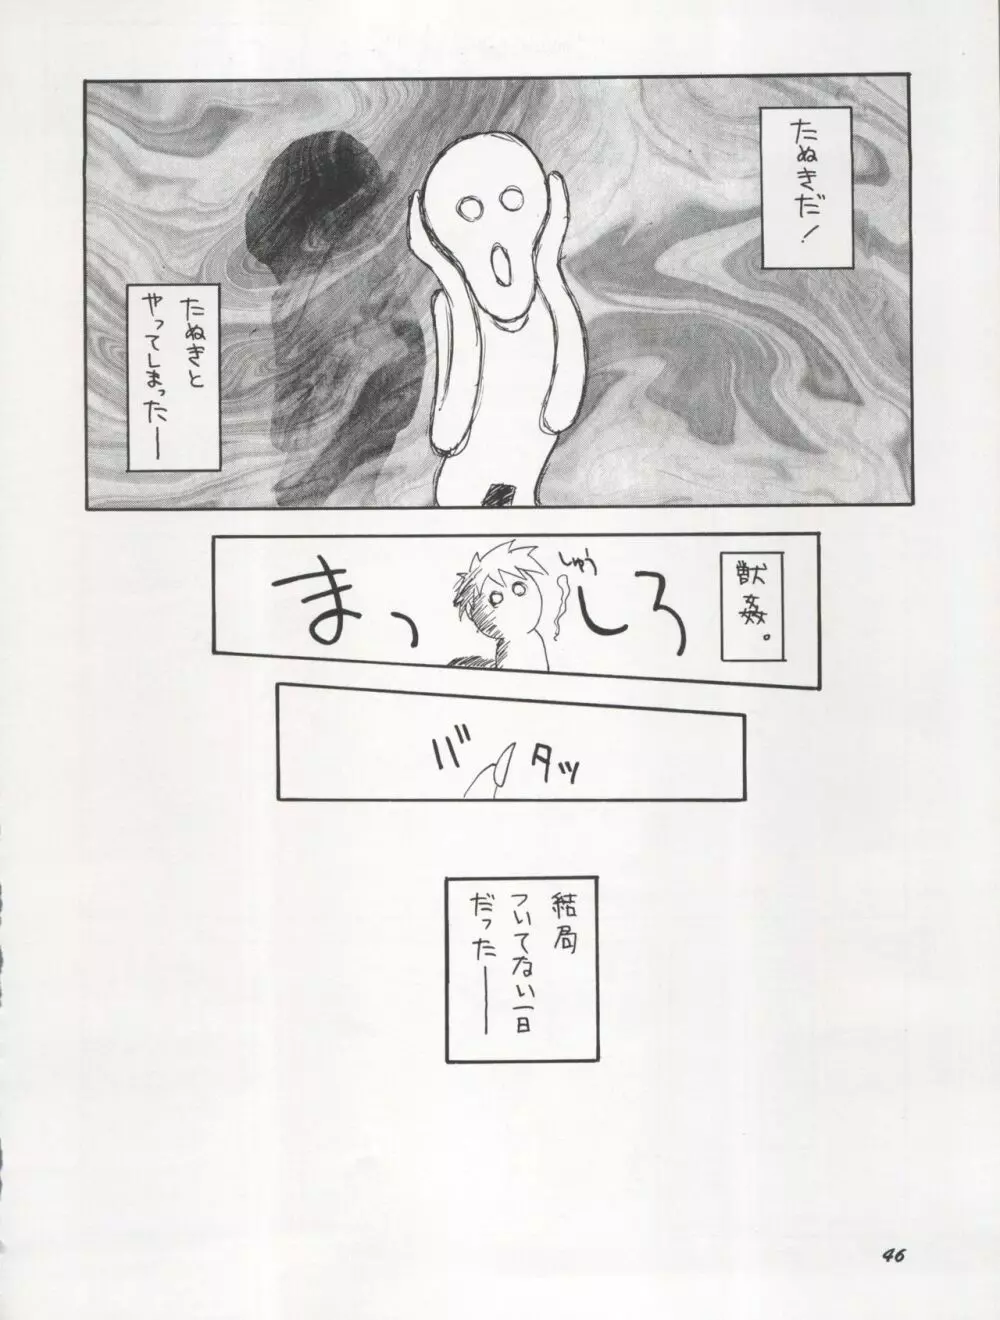 たぬきだ!
たぬきと
やってしまったー
獣姦。
まっしろ
しゅう
バタッ
結局
ついてない一日
だったー
46